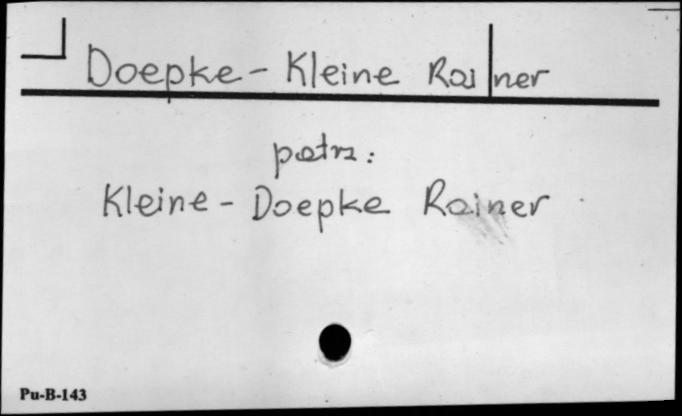 Doepke-Kleine Rainer
patrz:
Kleine-Doepke Rainer
Pu-B-143